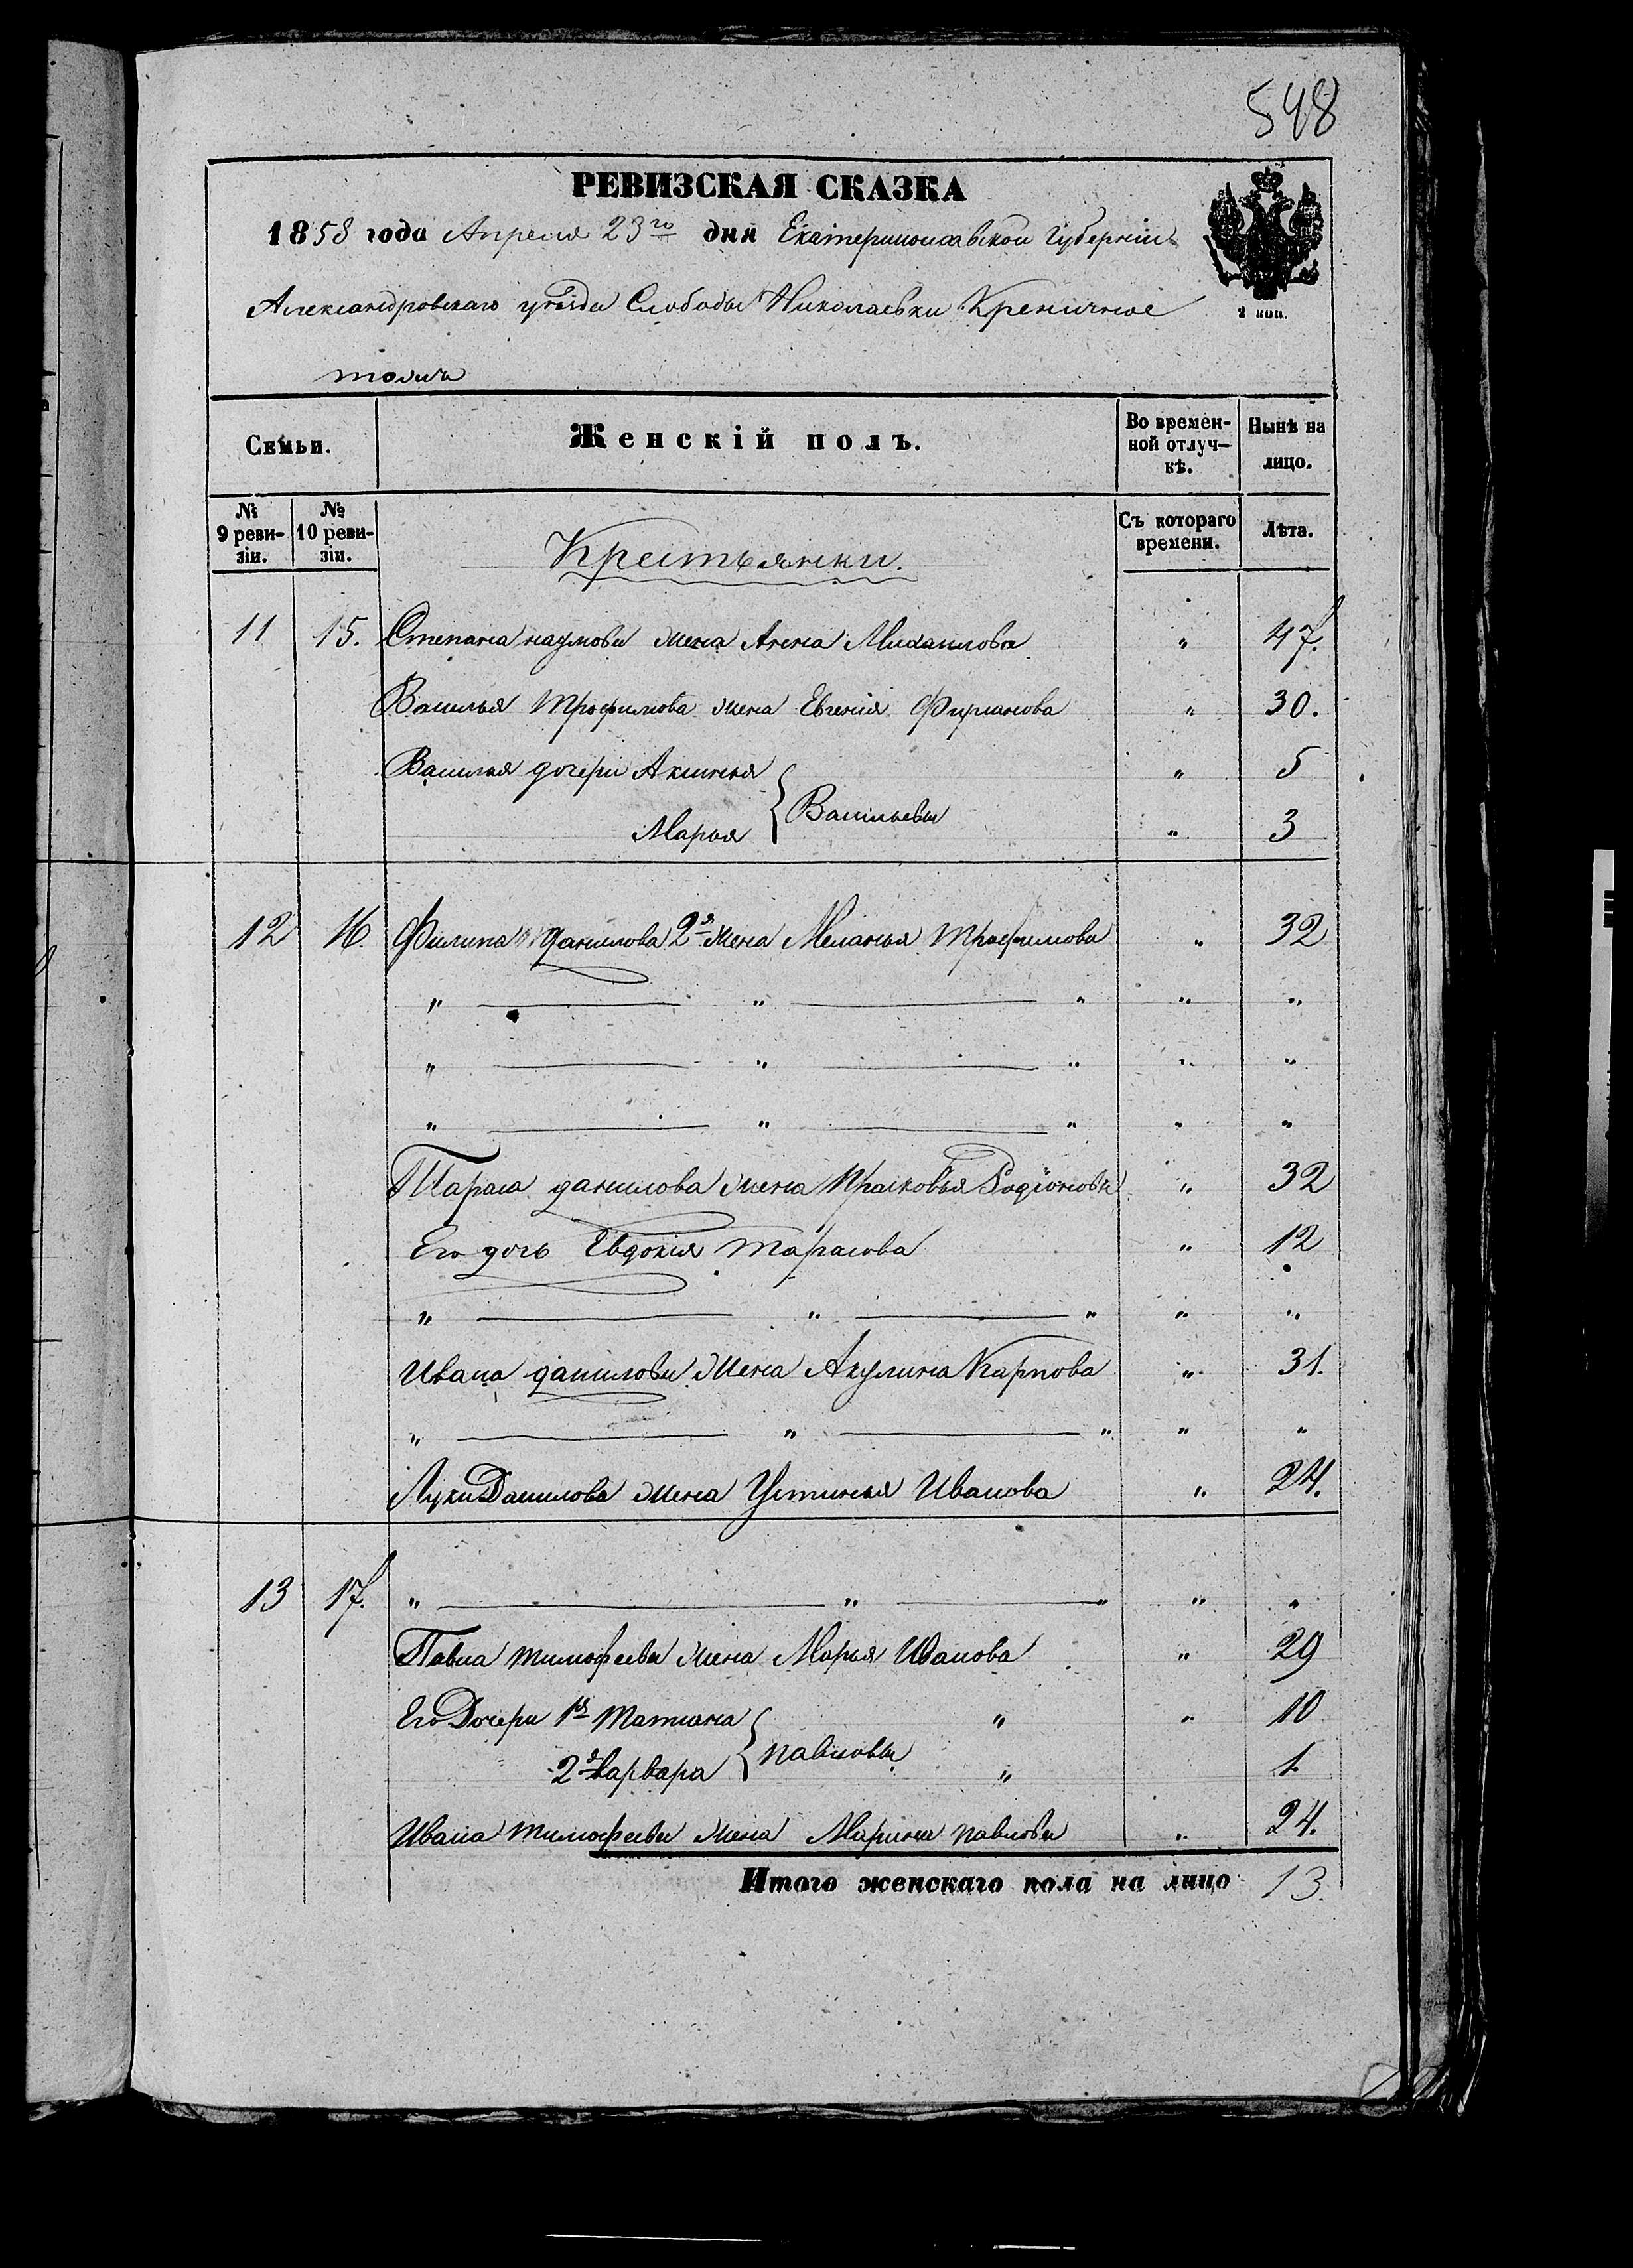 548
РЕВИЗСКАЯ СКАЗКА
1858 года Апреля 23го дня Екатеринославской Губернiи
Александровскаго уѣзда Слободы Николаевки Креничное
тожъ
2 коп.
Семьи. Женскiй полъ. Во времен-ной отлуч-кѣ. Нынѣ на лицо.
№ 9 реви-зiи. № 10 реви-зiи. Съ котораго времени. Лѣта.
Крестьянки.
11 15. Степана наумова жена Анна Михаилова " 47.
Василья Трофимова жена Евгенiя " 30.
Василья дочери Аксинья " 5
Марья } Васильевы " 3
12 16. Филипа данилова 2я жена Меланья Трофимова " 32
" " " " "
" " " " "
" " " " "
Тараса данилова жена Прасковья Родiонова " 32
Его дочь Евдокiя Тарасова " 12
" " " " "
Ивана данилова жена Акулина Карпова " 31.
" " " " "
Луки Данилова жена Устинья Иванова " 24.
13 17. " " " " "
Павла тимофеева жена Марья Иванова " 29
Его Дочери 1я Татиана " " 10
2я Варвара } павловы " 1.
Ивана тимофеева жена Марина павлова " 24.
Итого женскаго пола на лицо 13.